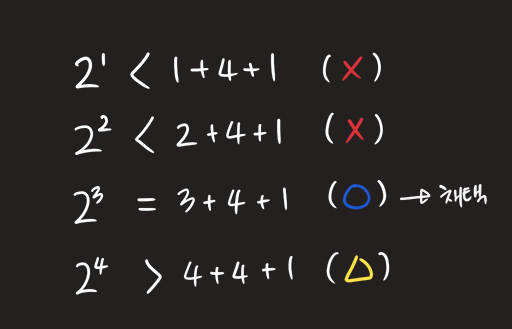 2¹ < 1+4+1 (X)
2² < 2+4+1 (X)
2³ = 3+4+1 (O) → 채택
2⁴ > 4+4+1 (△)